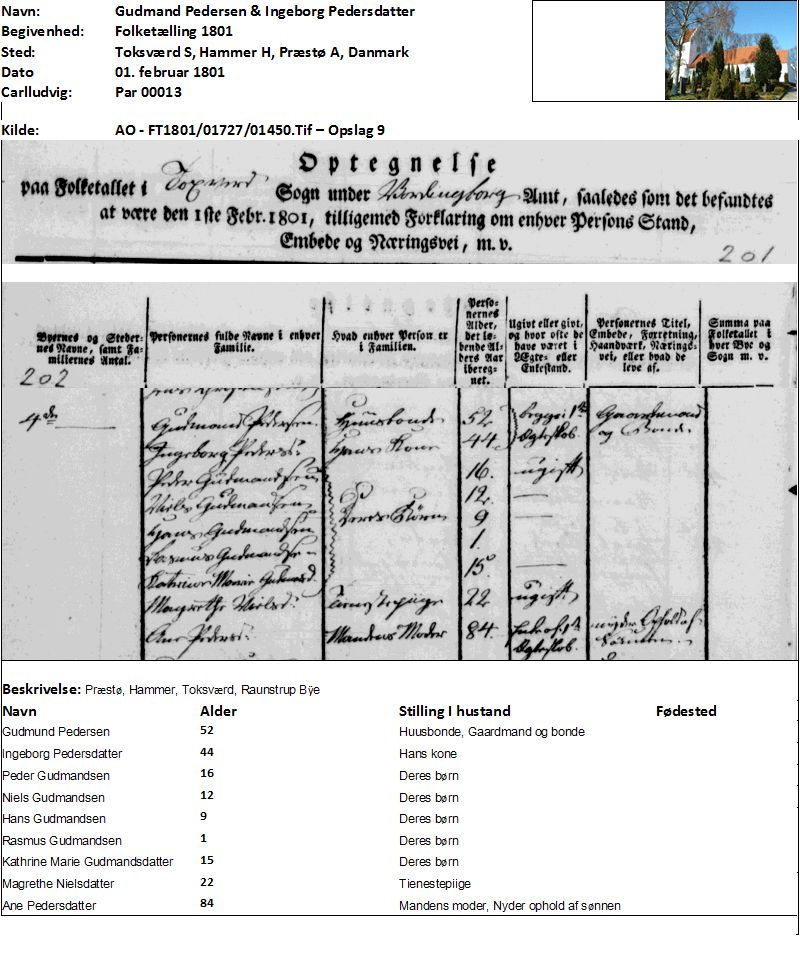 Navn: Gudmand Pedersen & Ingeborg Pedersdatter
Begivenhed: Folketælling 1801
Sted: Toksværd S, Hammer H, Præstø A, Danmark
Dato 01. februar 1801
Carlludvig: Par 00013
Kilde: AO - FT1801/01727/01450.Tif – Opslag 9
Optegnelse
paa Folketallet i Toxværd Sogn under Vordingborg Amt, saaledes som det befandtes
at være den 1ste Febr. 1801, tilligemed Forklaring om enhver Persons Stand,
Embede og Næringsvei, m. v.
201
Byernes og Stedernes Navne, samt Familiernes Antal.
Personernes fulde Navne i enhver Familie.
Hvad enhver Person er i Familien.
Personernes Alder, det løbende Alders Aar iberegnet.
Ugivt eller givt, og hvor ofte de have været i Ægte- eller Enkestand.
Personernes Titel, Embede, Forretning, Haandværk, Næringsvei, eller hvad de leve af.
Summa paa Folketallet i hver Bye og Sogn m. v.
202
4de Gudmand Pedersen Huusbonde 52 begge i 1te Gaardmand
Ingeborg Pedersd: Hans Kone 44 Ægteskab og Bonde
Peder Gudmandsen 16 ugift
Niels Gudmandsen 12 —
Hans Gudmandsen Deres Börn 9 —
Rasmus Gudmandsen 1
Kathrine Marie Gudmandsd. 15 —
Magrethe Nielsd: Tienestepiige 22 ugift
Ane Pedersd: Mandens Moder 84 Enke af 1te nyder Ophold af
Ægteskab. Sönnen
Beskrivelse: Præstø, Hammer, Toksværd, Raunstrup Bÿe
Navn Alder Stilling I hustand Fødested
Gudmund Pedersen 52 Huusbonde, Gaardmand og bonde
Ingeborg Pedersdatter 44 Hans kone
Peder Gudmandsen 16 Deres børn
Niels Gudmandsen 12 Deres børn
Hans Gudmandsen 9 Deres børn
Rasmus Gudmandsen 1 Deres børn
Kathrine Marie Gudmandsdatter 15 Deres børn
Magrethe Nielsdatter 22 Tienestepiige
Ane Pedersdatter 84 Mandens moder, Nyder ophold af sønnen